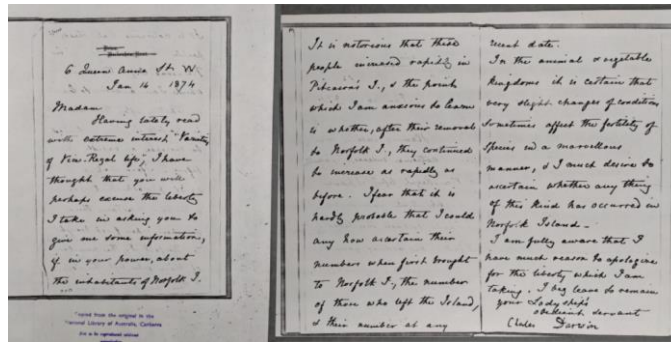 Down,
Beckenham, Kent.
6 Queen Anne St. W
Jan 14 1874
Madam
Having lately read
with extreme interest "Vanity
of Vice-Regal life", I have
thought that you will
perhaps excuse the liberty
I take in asking you to
give me some information,
if in your power, about
the inhabitants of Norfolk I.
from the original in the
National Library of Australia, Canberra
Not to be reproduced without
It is notorious that these
people increased rapidly in
Pitcairn's I., & the point
which I am anxious to learn
is whether, after their removal
to Norfolk I., they continued
to increase as rapidly as
before. I fear that it is
hardly probable that I could
any how ascertain their
numbers when first brought
to Norfolk I., the number
of those who left the Island,
& their number at any
recent date.
In the animal & vegetable
kingdoms it is certain that
very slight changes of conditions
sometimes affect the fertility of
species in a marvellous
manner, & I much desire to
ascertain whether any thing
of this kind has occurred in
Norfolk Island—
I am fully aware that I
have much reason to apologise
for the liberty which I am
taking. I beg leave to remain
your Ladyship's
obedient servant
Charles Darwin